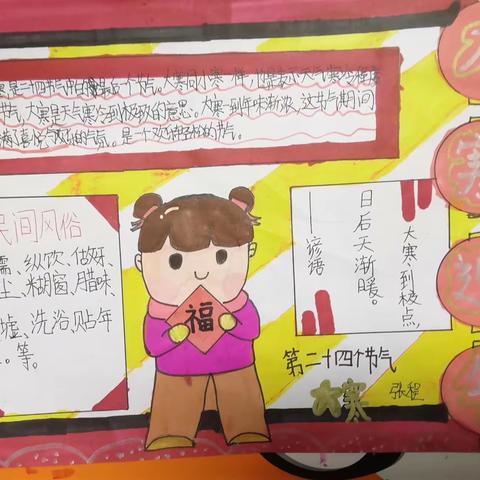 寒是二十四节气中的最后一个节气。大寒同小寒一样,也是表示天气寒冷程度
节气,大寒是天气寒冷到极致的意思。大寒一到年味渐浓,这节气期间
满了喜悦气氛的气氛。是一个欢快轻松的节气。
民间风俗
糯、纵饮、做牙、
尘、糊窗、腊味、
墟、洗浴、贴年
。等。
福
大寒到极点,
日后天渐暖。
——谚语
第二十四个节气
大寒
张程